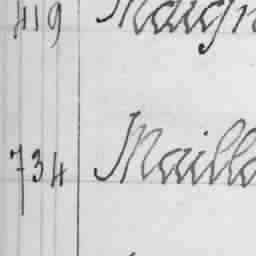 419 Maign
734 Mailla